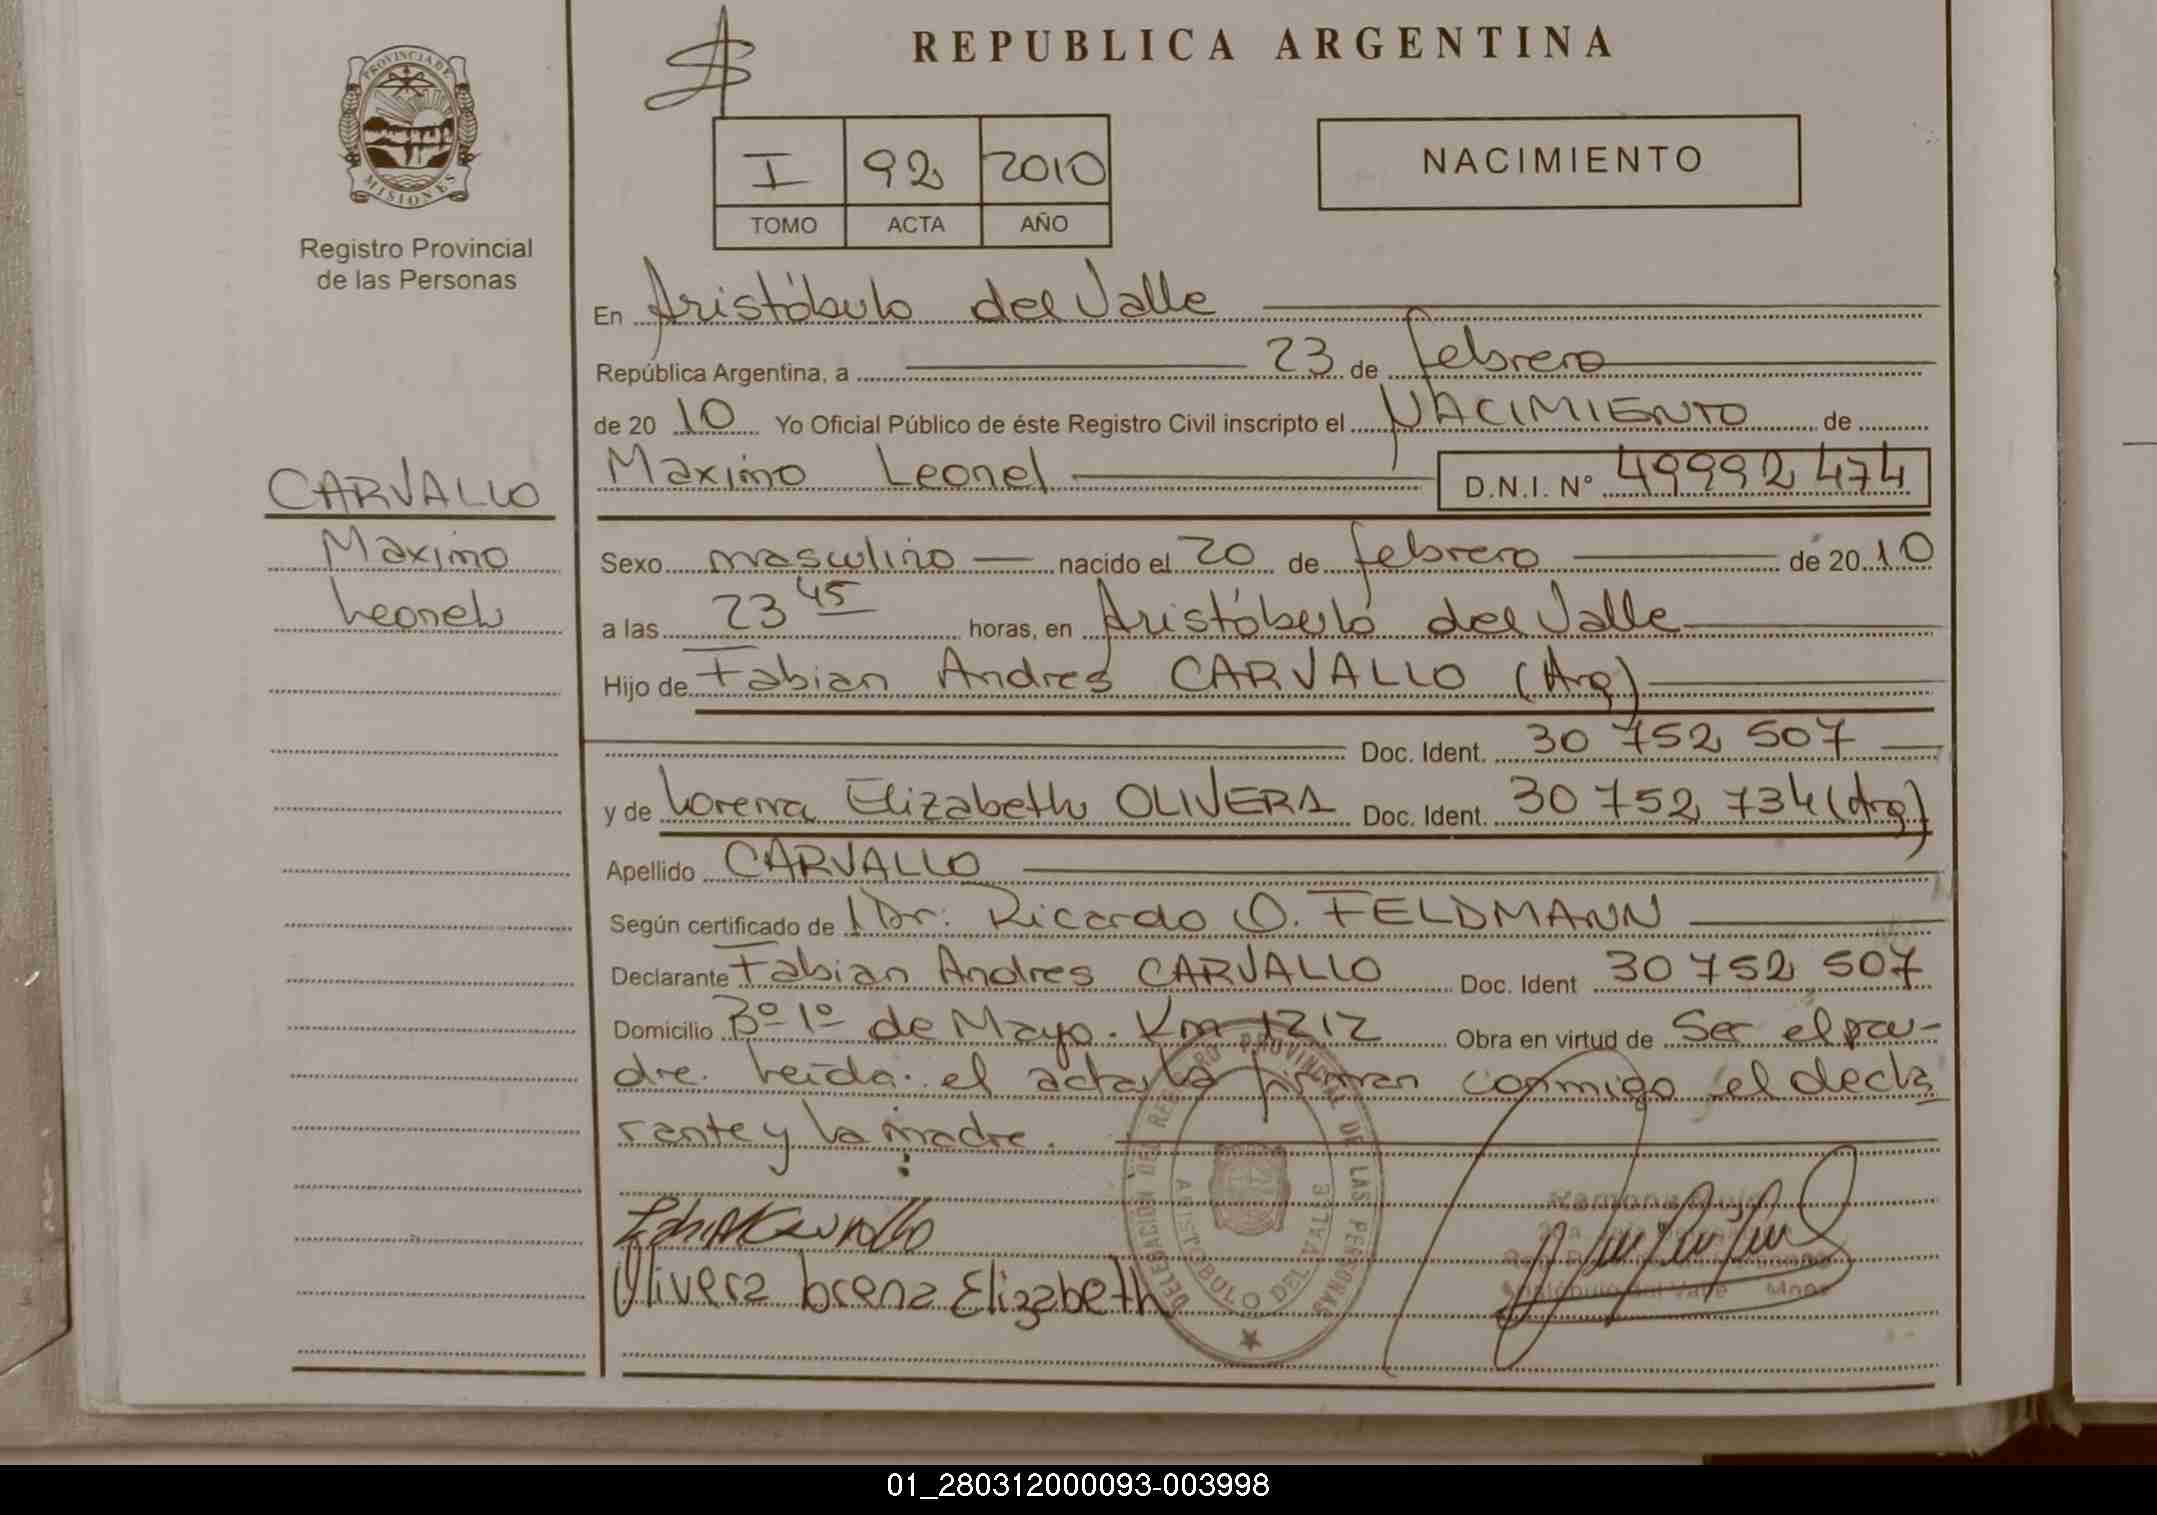 REPUBLICA ARGENTINA
PROVINCIA DE MISIONES
Registro Provincial
de las Personas
I 92 2010
TOMO ACTA AÑO
NACIMIENTO
En Aristóbulo del Valle
República Argentina, a 23 de febrero
de 2010 Yo Oficial Público de éste Registro Civil inscripto el NACIMIENTO de
Maximo Leonel D.N.I. Nº 49992474
CARVALLO
Maximo
Leonel
Sexo masculino nacido el 20 de febrero de 2010
a las 23 45 horas, en Aristóbulo del Valle
Hijo de Fabian Andres CARVALLO (Arg)
Doc. Ident. 30 752 507
y de Lorena Elizabeth OLIVERA Doc. Ident. 30 752 734 (Arg)
Apellido CARVALLO
Según certificado de Dr. Ricardo O. FELDMANN
Declarante Fabian Andres CARVALLO Doc. Ident 30 752 507
Domicilio Bº 1º de Mayo. Km 1212 Obra en virtud de Ser el pa-
dre. Leída el acta la firman conmigo el decla
rante y la madre.
DELEGACION DEL REGISTRO PROVINCIAL DE LAS PERSONAS
ARISTOBULO DEL VALLE
Olivera Lorena Elizabeth
Ramona
Aristóbulo del Valle Mnes
01_280312000093-003998